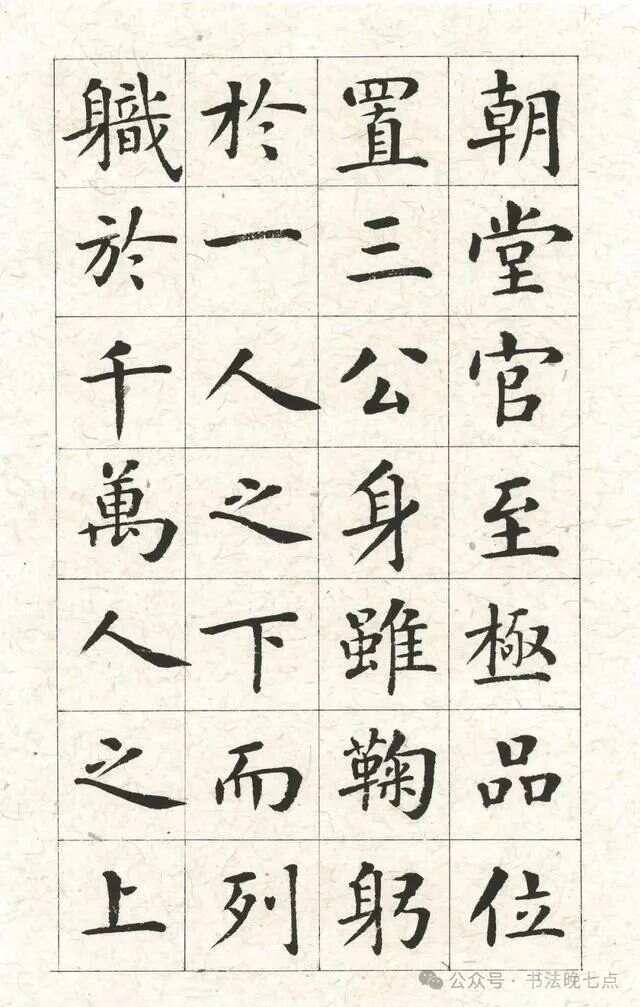 朝堂官至極品位
置三公身雖鞠躬
於一人之下而列
職於千萬人之上
公众号·书法晚七点